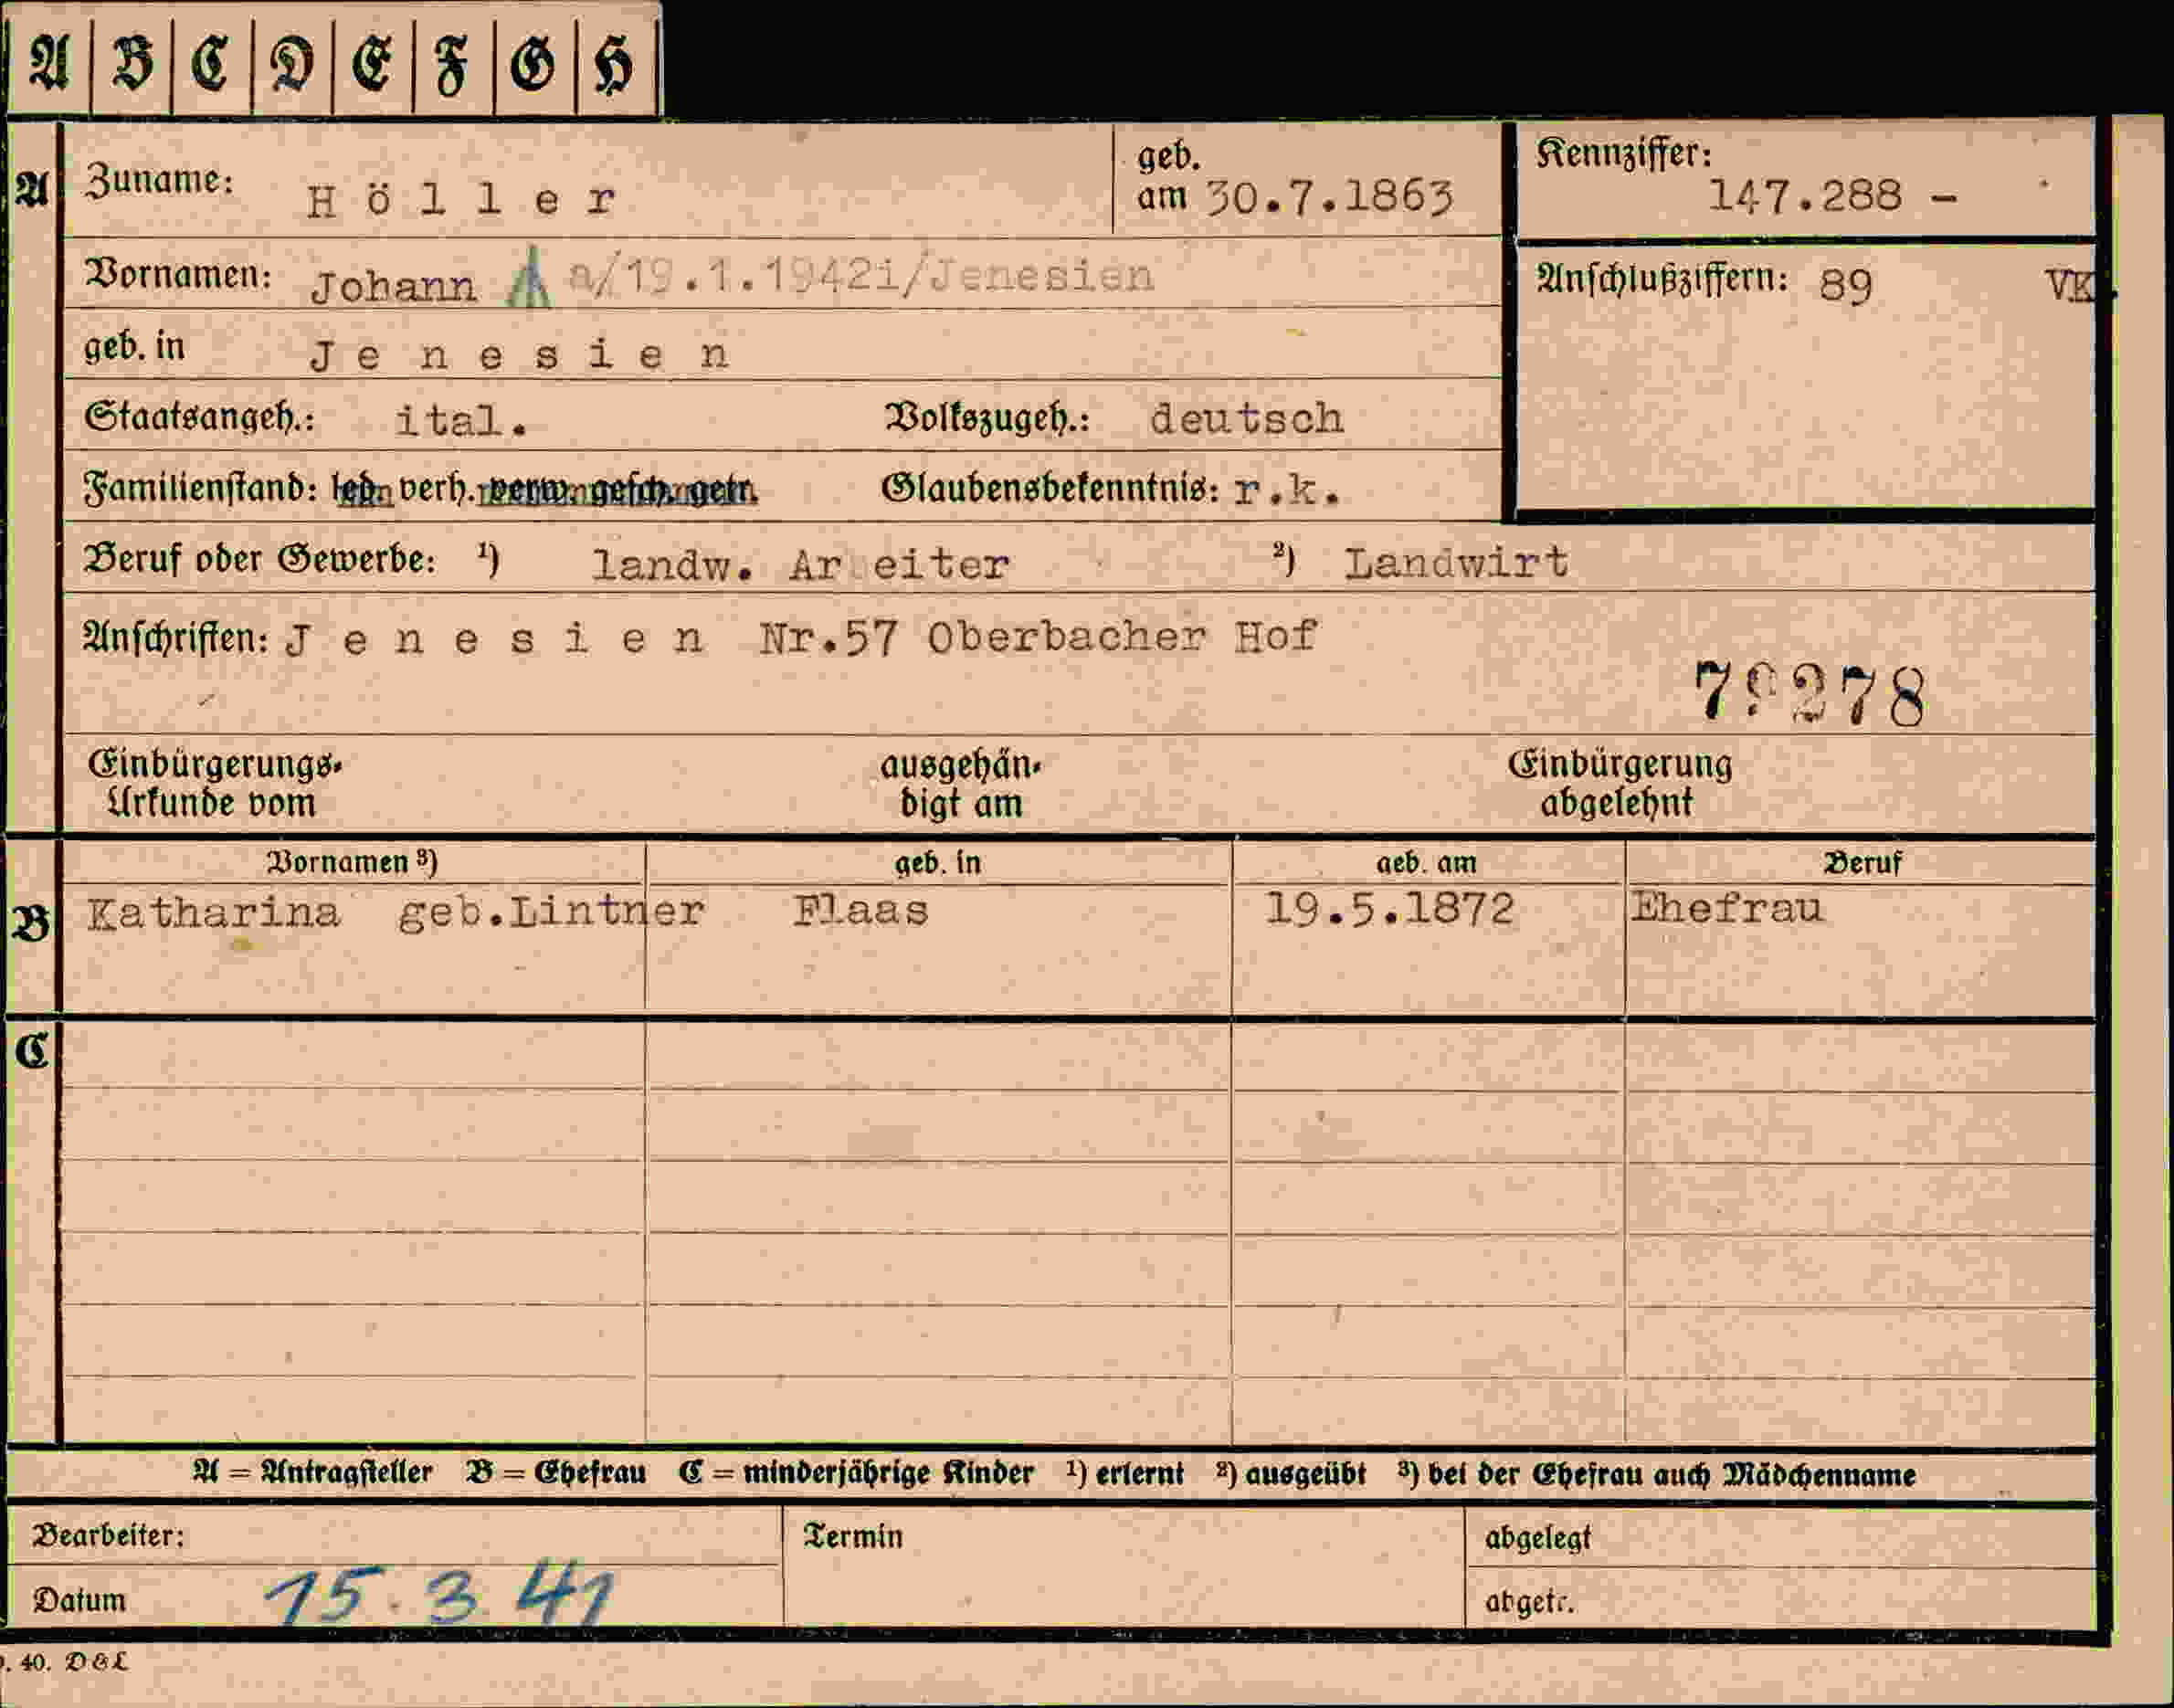 A B C D E F G H
A Zuname: Höller geb. am 30.7.1863 Kennziffer: 147.288 -
Vornamen: Johann a/19.1.1942i/Jenesien Anschlußziffern: 89 VK
geb. in Jenesien
Staatsangeh.: ital. Volkszugeh.: deutsch
Familienstand: led. verh. verw. gesch. getr. Glaubensbekenntnis: r.k.
Beruf oder Gewerbe: ¹) landw. Ar eiter ²) Landwirt
Anschriften: Jenesien Nr.57 Oberbacher Hof
Einbürgerungs-Urkunde vom ausgehändigt am Einbürgerung abgelehnt
Vornamen ³) geb. in geb. am Beruf
B Katharina geb.Lintner Flaas 19.5.1872 Ehefrau
C
A = Antragsteller B = Ehefrau C = minderjährige Kinder ¹) erlernt ²) ausgeübt ³) bei der Ehefrau auch Mädchenname
Bearbeiter: Termin abgelegt
Datum 15.3.41 abgetr.
40. D&L